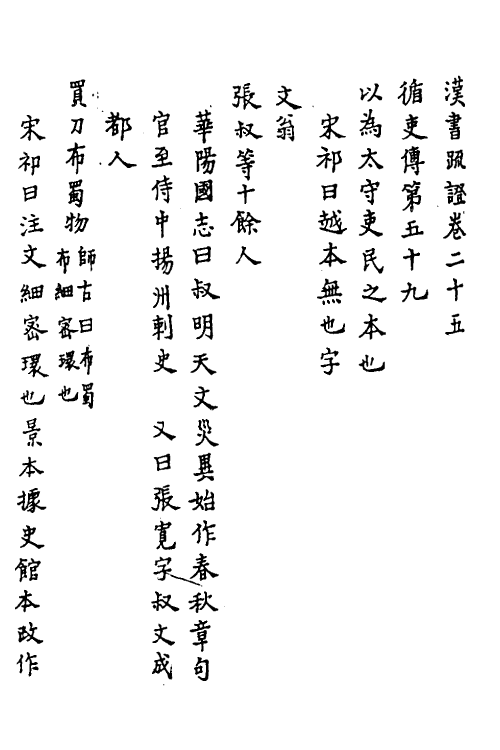 漢書䟽證卷二十五
循吏傳第五十九
以為太守吏民之本也
宋祁曰越本無也字
文翁
張叔等十餘人
華陽國志曰叔明天文災異始作春秋章句
官至侍中揚州刺史 又曰張寬字叔文成
都人
買刀布蜀物師古曰布蜀布細密環也
宋祁曰注文細密環也景本據史館本改作